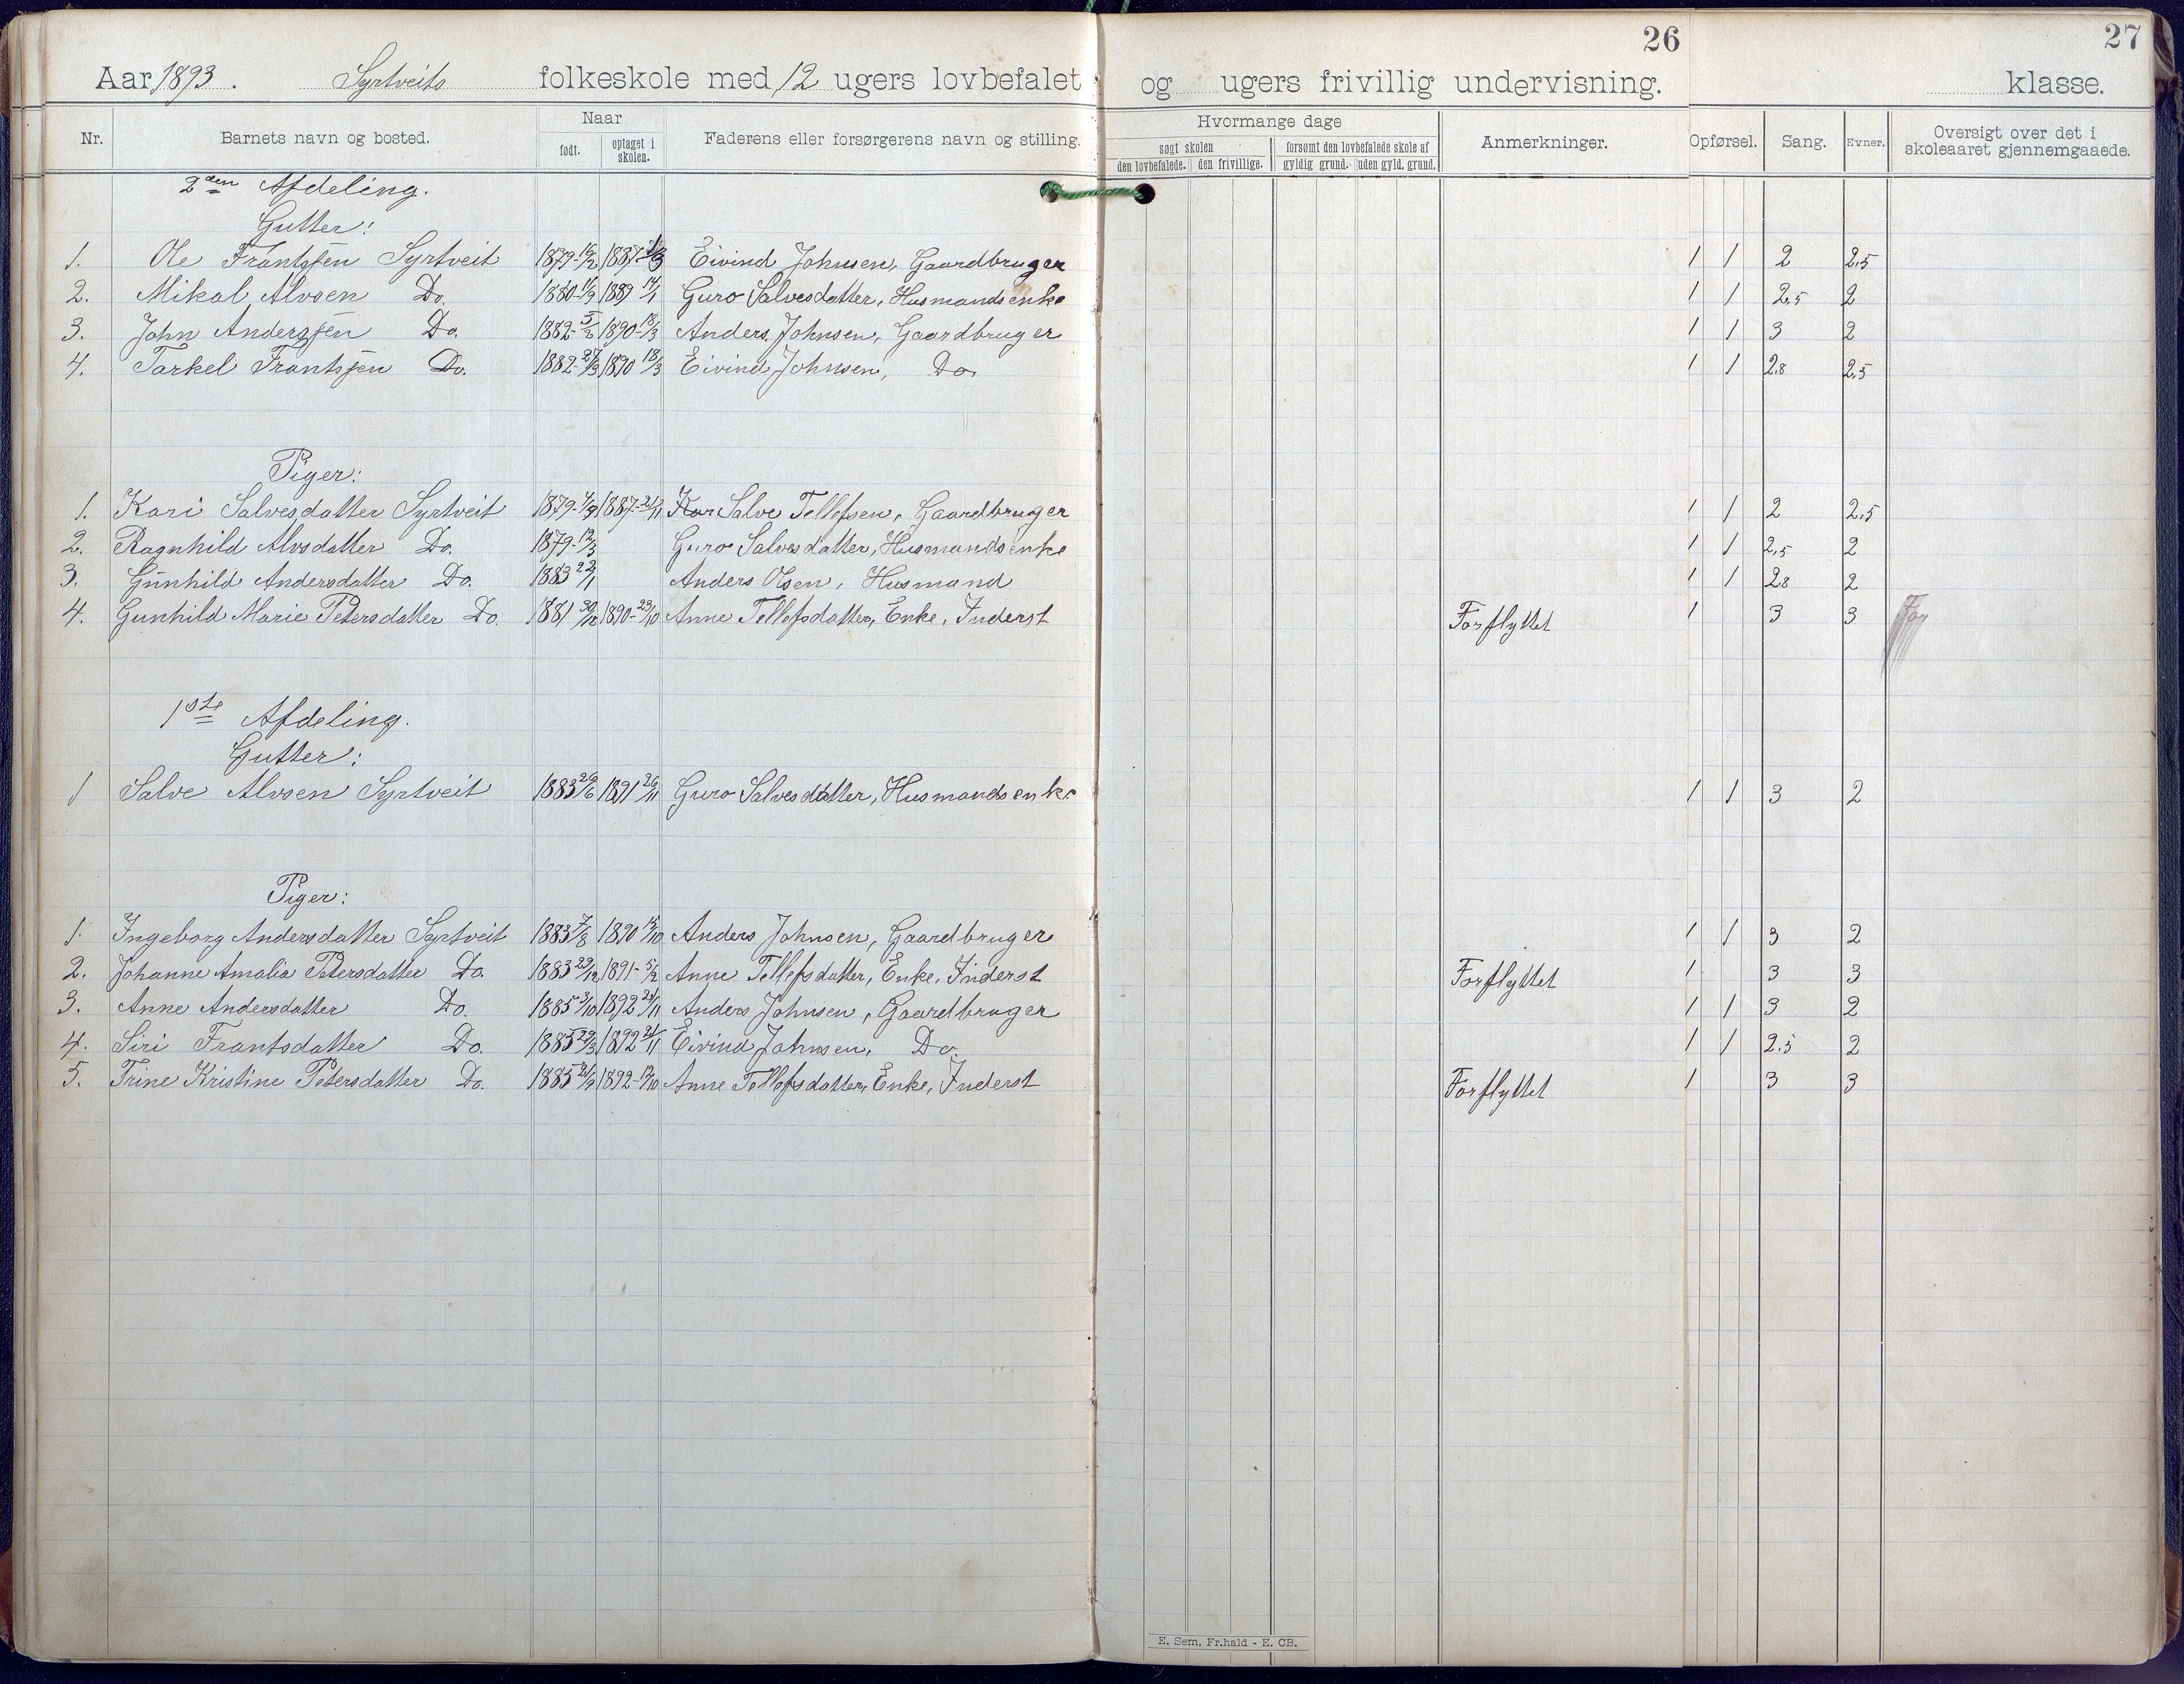 26
27
Aar 1893. Syrtveits folkeskole med 12 ugers lovbefalet og ugers frivillig undervisning. klasse.
Nr. Barnets navn og bosted. Naar født. optaget i skolen. Faderens eller forsørgerens navn og stilling. Hvormange dage søgt skolen den lovbefalede. den frivillige. forsømt den lovbefalede skole af gyldig grund. uden gyld. grund. Anmerkninger. Opførsel. Sang. Evner. Oversigt over det i skoleaaret gjennemgaaede.
2den Afdeling.
Gutter:
1. Ole Frantssen Syrtveit 1879-16/2 1887-1/3 Eivind Johnsen, Gaardbruger 1 1 2 2,5
2. Mikal Alvsen Do. 1880-11/9 1889 14/1 Guro Salvesdatter, Husmandsenke 1 1 2,5 2
3. John Anderssen Do. 1882-5/2 1890-18/3 Anders Johnsen, Gaardbruger 1 1 3 2
4. Tarkel Frantssen Do. 1882-27/3 1890 18/3 Eivind Johnsen, Do. 1 1 2,8 2,5
Piger:
1. Kari Salvesdatter Syrtveit 1879- 1887-21/11 Salve Tellefsen, Gaardbruger 1 1 2 2,5
2. Ragnhild Alvsdatter Do. 1879-12/3 Guro Salvesdatter, Husmandsenke 1 1 2,5 2
3. Gunhild Andersdatter Do. 1883 22/1 Anders Olsen, Husmand 1 1 2,8 2
4. Gunhild Marie Petersdatter Do. 1881 30/12 1890-23/10 Anne Tellefsdatter, Enke, Inderst Forflyttet 1 3 3 For
1ste Afdeling.
Gutter:
1 Salve Alvsen Syrtveit 1883 29/6 1891 26/11 Guro Salvesdatter, Husmandsenke 1 1 3 2
Piger:
1. Ingeborg Andersdatter Syrtveit 1883 7/8 1890 15/10 Anders Johnsen, Gaardbruger 1 1 3 2
2. Johanne Amalia Petersdatter Do. 1883 23/12 1891-5/2 Anne Tellefsdatter, Enke, Inderst Forflyttet 1 3 3
3. Anne Andersdatter Do. 1885 3/10 1892 21/11 Anders Johnsen, Gaardbruger 1 1 3 2
4. Siri Frantsdatter Do. 1885 29/3 1892 21/11 Eivind Johnsen, Do. 1 1 2,5 2
5. Trine Kristine Petersdatter Do. 1885 21/9 1892-17/10 Anne Tellefsdatter, Enke, Inderst Forflyttet 1 3 3
E. Sem, Fr.hald - E. CB.